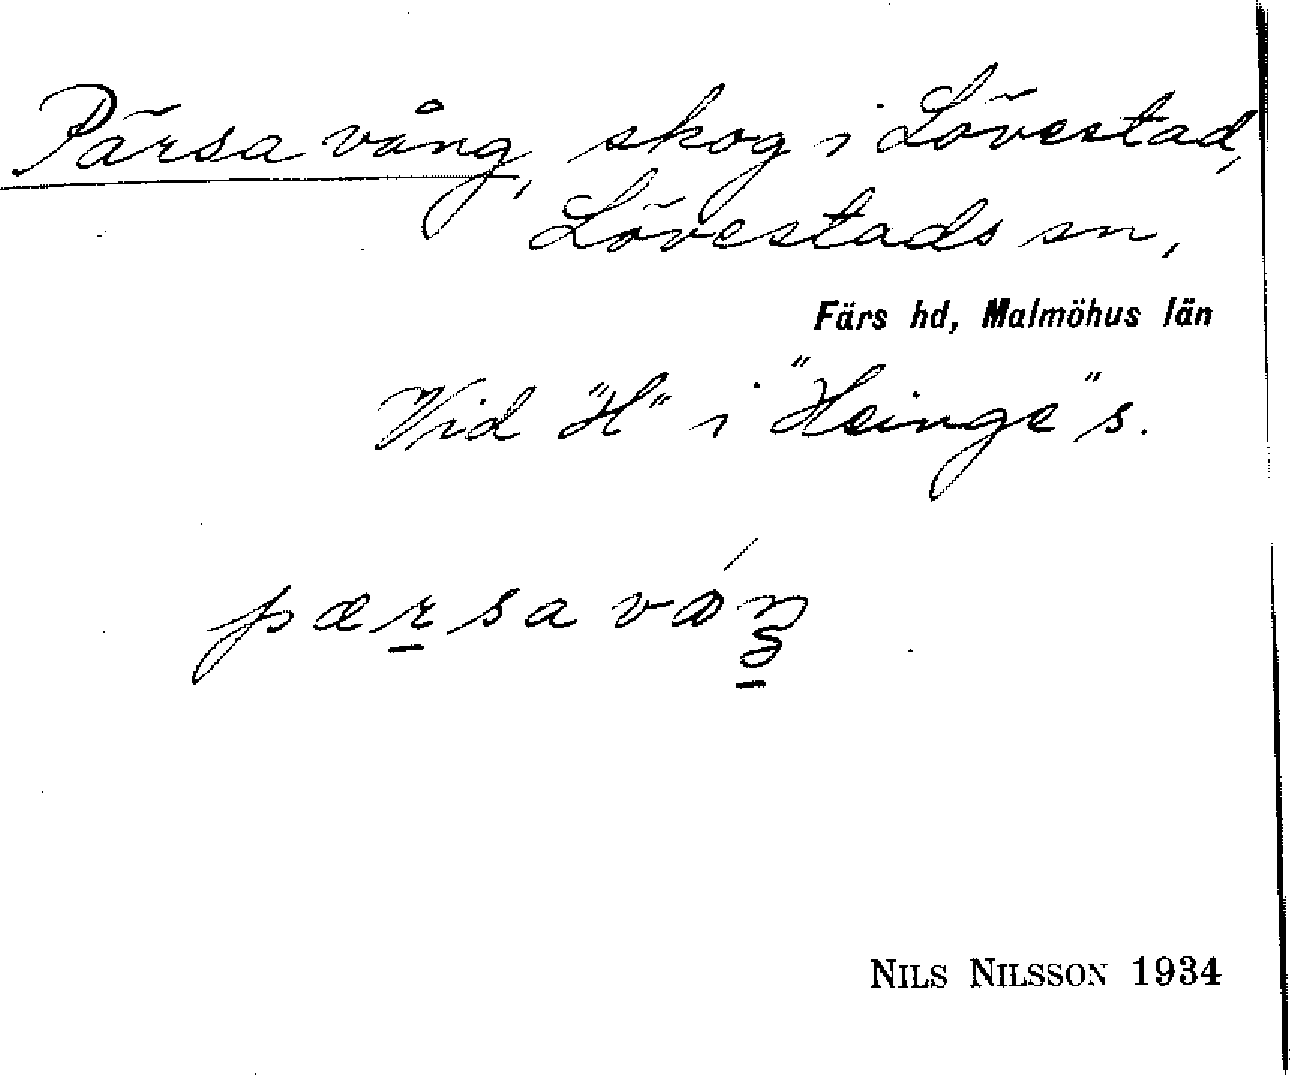 Pärsa vång, skog i Lövestad,
Lövestads sn,
Färs hd, Malmöhus län
Vid "H" i "Heinge"s.
pærsa
NILS NILSSON 1934